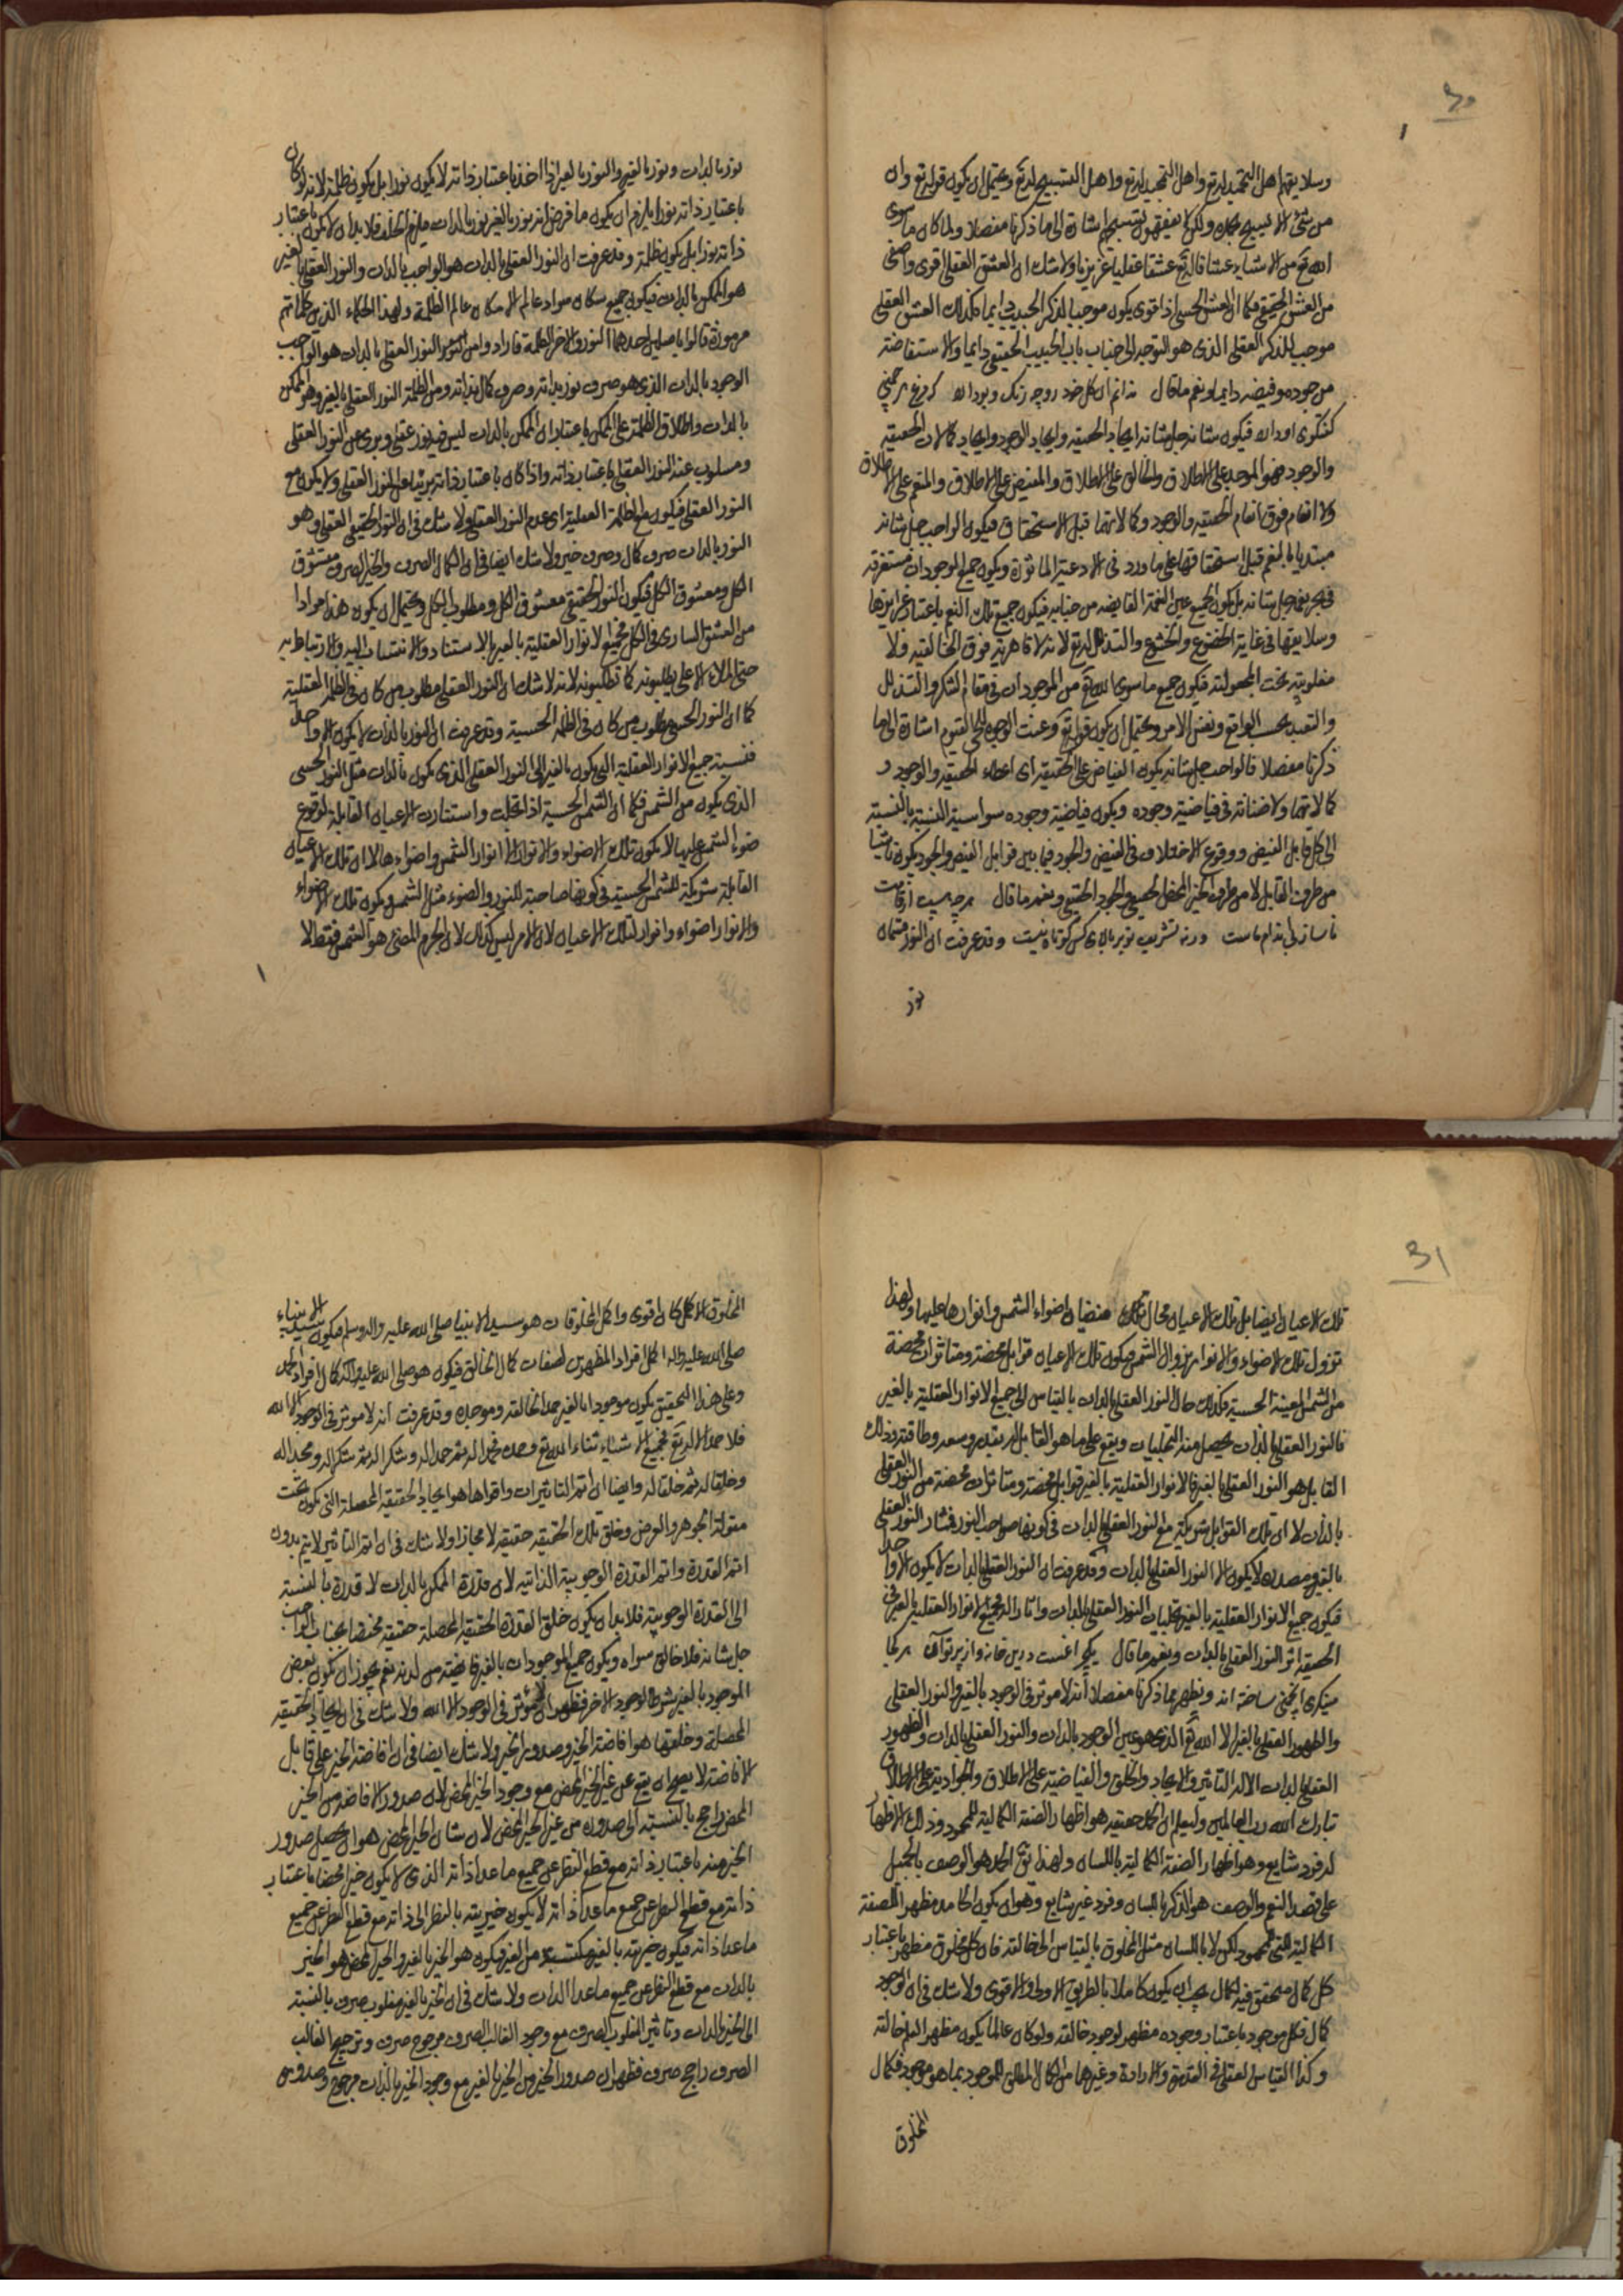 30
وسلايقهم اهل التحميد له تع واهل التمجيد له تع واهل التسبيح له تع ويحتمل ان يكون قوله تع وان
من شئ الا يسبح بحمده ولكن لا تفقهون تسبيحهم اشارة الى ما ذكرنا مفصلا ولما كان ما سوى
الله تع من الاشياء عشاقا له تع عشقا عقليا غريزيا ولا شك ان العشق العقلى اقوى واصفى
من العشق الحسى فكما ان العشق الحسى اذا قوى يكون موجبا لذكر الحبيب دايما كذلك العشق العقلى
موجب للذكر العقلى الذى هو التوجه الى جناب باب الحبيب الحقيقى دايما والاستفاضة
من جوده وفيضه دايما ونعم ما قال نه انم ان كل خد روچه رنك وبو دارد كه مرغ هر چمنى
كفتكوى او دارد فيكون شانه جل شانه ايجاد الحقيقة وايجاد الوجود وايجاد كمالات الحقيقة
والوجود فهو الموجد على الاطلاق والخالق على الاطلاق والمفيض على الاطلاق والمنعم على الاطلاق
ولا انعام فوق انعام الحقيقة والوجود وكمالاتهما قبل الاستحقاق فيكون الواجب جل شانه
مبتديا بالنعم قبل استحقاقها على ما ورد فى الادعية الماثورة ويكون جميع الموجودات مستغرقة
فى بحر نعمه جل شانه بل يكون الجميع عين النعمة الفايضة من جنابه فيكون جميع تلك النعم باعتبار غرايزها
وسلايقها فى غاية الخضوع والخشوع والتذلل له تع لانه لا قاهرية فوق الخالقية ولا
مغلوبية تحت المجعولية فيكون جميع ما سوى الله تع من الموجودات فى مقام الشكر والتذلل
والتعبد بحسب الواقع ونفس الامر ويحتمل ان يكون قوله تع وعنت الوجوه للحى القيوم اشارة الى ما
ذكرنا مفصلا فالواجب جل شانه يكون الفياض على الحقيقة اى اعطاء الحقيقة والوجود و
كمالاتهما ولا ضنانة فى فياضية وجوده ويكون فياضية وجوده سواسية النسبة بالنسبة
الى كل قابل الفيض ووقوع الاختلاف فى الفيض والجود فيما بين قوابل الفيض والجود يكون ناشيا
من طرف القابل لا من طرف الخير المحض الحقيقى والجود الحقيقى ونعم ما قال هر چه هست از قامت
ناساز بى اندام ماست ورنه تشريف تو بر بالاى كس كوتاه نيست وقد عرفت ان النور قسمان
نور
نور بالذات ونور بالغير والنور بالغير اذا اخذ باعتبار ذاته لا يكون نورا بل يكون ظلمة لانه لو كان
باعتبار ذاته نورا يلزم ان يكون ما فرض انه نور بالغير نور بالذات فيلزم الخلف فلا بد ان لا يكون باعتبار
ذاته نورا بل يكون ظلمة وقد عرفت ان النور العقلى بالذات هو الواجب بالذات والنور العقلى بالغير
هو الممكن بالذات فيكون جميع سكان سواد عالم الامكان عالم الظلمة ولهذا الحكماء الذين كلماتهم
مرموزة قالوا باصلين احدهما النور والاخر الظلمة فارادوا من النور النور العقلى بالذات هو الواجب
الوجود بالذات الذى هو صرف نور بذاته وصرف كمال بذاته ومن الظلمة النور العقلى بالغير وهو الممكن
بالذات واطلاق الظلمة على الممكن باعتبار ان الممكن بالذات ليس فيه نور عقلى وبرى عن النور العقلى
ومسلوب عنه النور العقلى باعتبار ذاته واذا كان باعتبار ذاته بريئا عن النور العقلى ولا يكون مع
النور العقلى فيكون مع الظلمة العقلية اى عدم النور العقلى ولا شك فى ان النور الحقيقى العقلى وهو
النور بالذات صرف كمال وصرف خير ولا شك ايضا فى ان الكمال الصرف والخير الصرف متشوق
الكل ومعشوق الكل فيكون النور الحقيقى معشوق الكل ومطلوب الكل ويحتمل ان يكون هذا مرادا
من العشق السارى فى الكل فجميع الانوار العقلية بالغير بالاستناد والانتساب اليه والارتباط به
حتى الملاء الاعلى يطلبونه كما تطلبونه لانه لا شك ان النور العقلى مطلوب من كان فى الظلمة العقلية
كما ان النور الحسى مطلوب من كان فى الظلمة الحسية وقد عرفت ان النور بالذات لا يكون الا واحدا
فنسبة جميع الانوار العقلية التى يكون بالغير الى النور العقلى الذى يكون بالذات مثل النور الحسى
الذى يكون من الشمس فكما ان الشمس الحسية اذا تجلت واستنارت الاعيان القابلة لوقوع
ضوء الشمس عليها لا يكون تلك الاضواء والانوار الا انوار الشمس واضواءها لا ان تلك الاعيان
القابلة شريكة للشمس الحسية فى كونها صاحبة للنور والضوء مثل الشمس ويكون تلك الاضواء
والانوار اضواء وانوار لتلك الاعيان لان الامر ليس كذلك لان الجرم المضئ هو الشمس فقط لا
31
تلك الاعيان ايضا بل تلك الاعيان محال فيضان اضواء الشمس وانوارها عليها ولهذا
تزول تلك الاضواء والانوار بزوال الشمس فيكون تلك الاعيان قوابل محضة ومتاثرات محضة
من الشمس المعينة الحسية فكذلك حال النور العقلى بالذات بالقياس الى جميع الانوار العقلية بالغير
فالنور العقلى بالذات يحصل منه التجليات ويقع على ما هو القابل له بقدر وسعه وطاقته وذلك
القابل هو النور العقلى بالغير فالانوار العقلية بالغير قوابل محضة ومتاثرات محضة من النور العقلى
بالذات لا ان تلك القوابل شريكة مع النور العقلى بالذات فى كونها صواحب النور فمنشاء النور العقلى
بالغير ومصدره لا يكون الا النور العقلى بالذات وقد عرفت ان النور العقلى بالذات لا يكون الا واحدا
فيكون جميع الانوار العقلية بالغير تجليات النور العقلى بالذات واثاراله فجميع الانوار العقلية بالغير فى
الحقيقة اثر النور العقلى بالذات ونعم ما قال يك چراغست درين خانه واز پرتو آن هر كجا
مينگرى انجمنى ساخته اند ويظهر بما ذكرنا مفصلا انه لا موثر فى الوجود بالغير والنور العقلى
والظهور العقلى بالغير الا الله تع الذى هو عين الوجود بالذات والنور العقلى بالذات والظهور
العقلى بالذات الا له التاثير والايجاد والخلق والفياضية على الاطلاق والجوادية على الاطلاق
تبارك الله رب العالمين وليعلم ان الحمد حقيقة هو اظهار الصفة الكمالية للمحمود وذلك الاظهار
له فرد شايع وهو اظهار الصفة الكمالية باللسان ولهذا قيل الحمد هو الوصف بالجميل
على قصد النعم والوصف هو الذكر باللسان وفرد غير شايع وهو ان يكون الحامد مظهرا للصفة
الكمالية التى للمحمود لكن لا باللسان مثل المخلوق بالقياس الى خالقه فان كل مخلوق مظهر باعتبار
كل كمال متحقق فيه لكمال يجب ان يكون كاملا بالطريق الاولى والاقوى ولا شك فى ان الوجود
كمال فكل موجود باعتبار وجوده مظهر لوجود خالقه ولو كان عالما يكون مظهر العلم خالقه
وكذا القياس العقلى فى القدرة والارادة وغيرهما من الكمال المطلق للموجود بما هو موجود فكمال
المخلوق
المخلوق الاكمل كان اقوى واكمل المخلوقات هو سيد الانبيا صلى الله عليه واله وسلم فيكون سيد الانبياء
صلى الله عليه واله اكمل افراد المظهرين لصفات كمال الخالق فيكون هو صلى الله عليه واله اكمل افراد الحمد
وعلى هذا التحقيق يكون موجودا بالغير حمدا لخالقه وموجده وقد عرفت انه لا موثر فى الوجود الا الله
فلا حمد الا له تع فجميع الاشياء ثناء الله تع وحمده فحمدا له ثم حمدا له وشكرا له ثم شكرا له ومجدا له
وخلقا له ثم خلقا له وايضا ان اتم التاثيرات واقواها هو ايجاد الحقيقة المحصلة التى يكون تحت
مقولة الجوهر والعرض وخلق تلك الحقيقة حقيقة لا مجازا ولا شك فى ان اتم التاثير لا يتم بدون
اتم القدرة واتم القدرة القدرة الوجوبية الذاتية لان قدرة الممكن بالذات لا قدرة بالنسبة
الى القدرة الوجوبية فلا بد ان يكون خلق القدرة الحقيقة المحصلة حقيقة مختصا بجناب الواجب
جل شانه فلا خالق سواه ويكون جميع الموجودات بالغير فايضة من لدنه نعم يجوز ان يكون بعض
الموجود بالغير شرطا لوجود الاخر فيظهر ان لا موثر فى الوجود الا الله ولا شك فى ان ايجاد الحقيقة
المحصلة وخلقها هو افاضة الخير وصدور الخير ولا شك ايضا فى ان افاضة الخير على قابل
الافاضة لا يصح ان يقع عن غير الخير المحض مع وجود الخير المحض لان صدور الافاضة من الخير
المحض راجح بالنسبة الى صدوره من غير الخير المحض لان شان الخير المحض هو ان يحصل صدور
الخير منه باعتبار ذاته مع قطع النظر عن جميع ما عدا ذاته الذى لا يكون خيرا محضا باعتبار
ذاته مع قطع النظر عن جميع ما عدا ذاته لا يكون خيريته بالنظر الى ذاته مع قطع النظر عن جميع
ما عدا ذاته فيكون خيريته بالغير مكتسبة من الغير فيكون هو الخير بالغير والخير المحض هو الخير
بالذات مع قطع النظر عن جميع ما عدا الذات ولا شك فى ان الخير بالغير مغلوب صرف بالنسبة
الى الخير بالذات وتاثير المغلوب الصرف مع وجود الغالب الصرف مرجوح صرف وترجيح الغالب
الصرف راجح صرف فظهر ان صدور الخير من الخير بالغير مع وجود الخير بالذات مرجوح وصدوره من